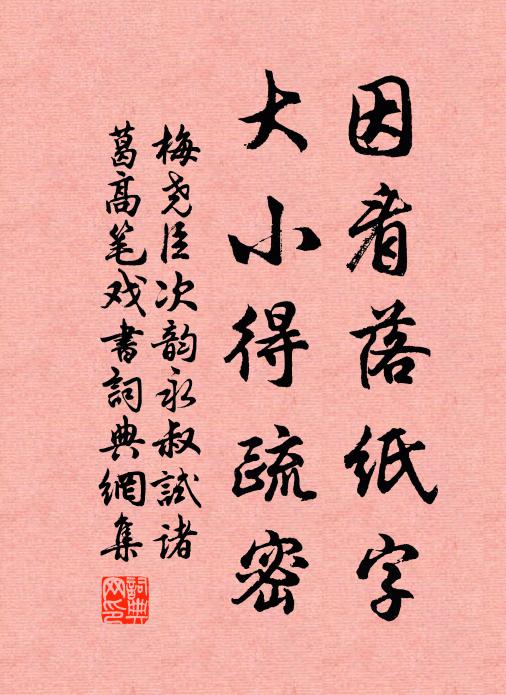 因看落纸字
大小得疏密
梅尧臣次韵永叔試诸
葛高笔戏书詞典網集
詞典网印